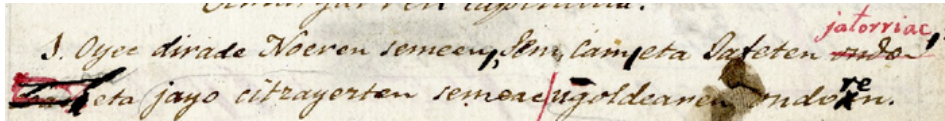 1. Oyec dirade Noeren semeen, Sem, Cam, eta Jafeten jatorriac,
eta jayo citzayezten semeac ugoldearen ondoren.